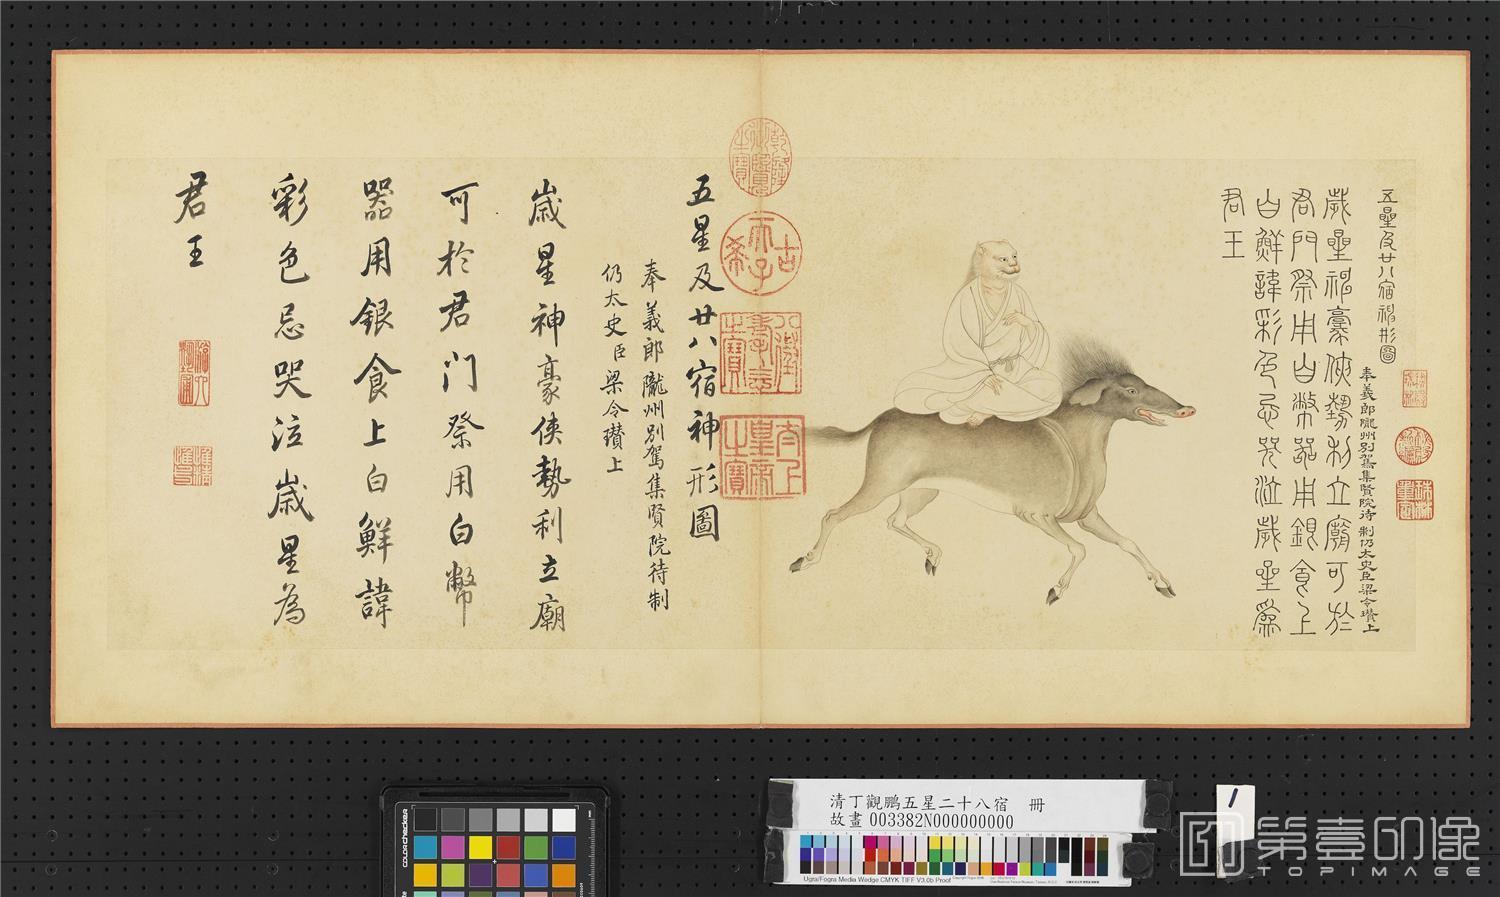 五星及廿八宿神形圖
奉義郎隴州別駕集賢院待制仍太史臣梁令瓚上
歲星神豪俠勢利立廟可於
君門祭用白幣器用銀食上
白鮮諱彩色忌哭泣歲星為
君王
古
希
天子
五星及廿八宿神形圖
奉義郎隴州別駕集賢院待制
仍太史臣梁令瓚上
歲星神豪俠勢利立廟
可於君門祭用白幣
器用銀食上白鮮諱
彩色忌哭泣歲星為
君王
清丁觀鵬五星二十八宿 冊
故畫 003382N000000000
Ugra/Fogra Media Wedge CMYK TIFF V3.0b Proof
colorchecker
1
第壹印像
TOPIMAGE